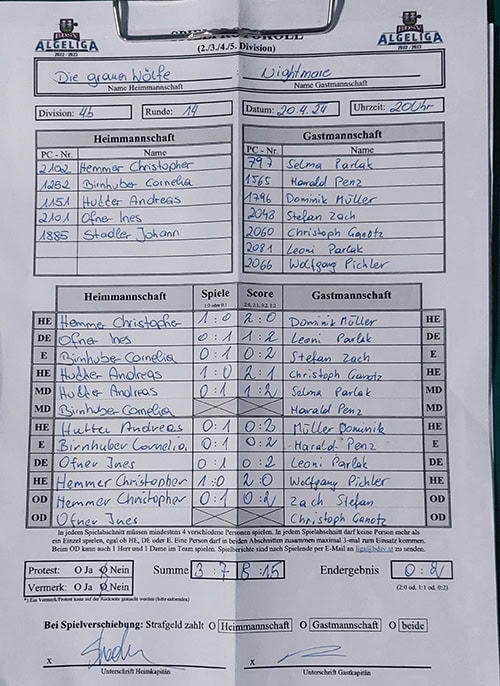 BDSV
ALGELIGA
2022 / 2023
SPIELPROTOKOLL
(2./3./4./5. Division)
BDSV
ALGELIGA
2022 / 2023
Die grauen Wölfe
Name Heimmannschaft
Nightmare
Name Gastmannschaft
Division: 4b
Runde: 14
Datum: 20.4.24
Uhrzeit: 20Uhr
Heimmannschaft
PC - Nr. Name
2102 Hemmer Christopher
1252 Birnhuber Cornelia
1151 Hutter Andreas
2101 Ofner Ines
1885 Stadler Johann
Gastmannschaft
PC - Nr. Name
797 Selma Parlak
1565 Harald Penz
1796 Dominik Müller
2043 Stefan Zach
2060 Christoph Ganotz
2081 Leoni Parlak
2066 Wolfgang Pichler
Heimmannschaft Spiele Score Gastmannschaft
1:0 oder 0:1 2:0, 2:1, 0:2, 1:2
HE Hemmer Christopher 1:0 2:0 Dominik Müller HE
DE Ofner Ines 0:1 1:2 Leoni Parlak DE
E Birnhuber Cornelia 0:1 0:2 Stefan Zach E
HE Hutter Andreas 1:0 2:1 Christoph Ganotz HE
MD Hutter Andreas 0:1 1:2 Selma Parlak MD
MD Birnhuber Cornelia Harald Penz MD
HE Hutter Andreas 0:1 0:2 Müller Dominik HE
E Birnhuber Cornelia 0:1 0:2 Harald Penz E
DE Ofner Ines 0:1 0:2 Leoni Parlak DE
HE Hemmer Christopher 1:0 2:0 Wolfgang Pichler HE
OD Hemmer Christopher 0:1 0:2 Zach Stefan OD
OD Ofner Ines Christoph Ganotz OD
In jedem Spielabschnitt müssen mindestens 4 verschiedene Personen spielen. In jedem Spielabschnitt darf keine Person mehr als
ein Einzel spielen, egal ob HE, DE oder E. Eine Person darf in beiden Abschnitten zusammen maximal 3-mal zum Einsatz kommen.
Beim OD kann auch 1 Herr und 1 Dame im Team spielen. Spielberichte sind nach Spielende per E-Mail an liga@bdsv.at zu senden.
Protest: O Ja O Nein
Summe 3 : 7 8 : 15
Endergebnis 0 : 2
Vermerk: O Ja O Nein
(2:0 od. 1:1 od. 0:2)
*) Ein Vermerk/Protest kann auf der Rückseite gemacht werden (bitte ankreuzen)
Bei Spielverschiebung: Strafgeld zahlt O Heimmannschaft O Gastmannschaft O beide
x
Unterschrift Heimkapitän
x
Unterschrift Gastkapitän